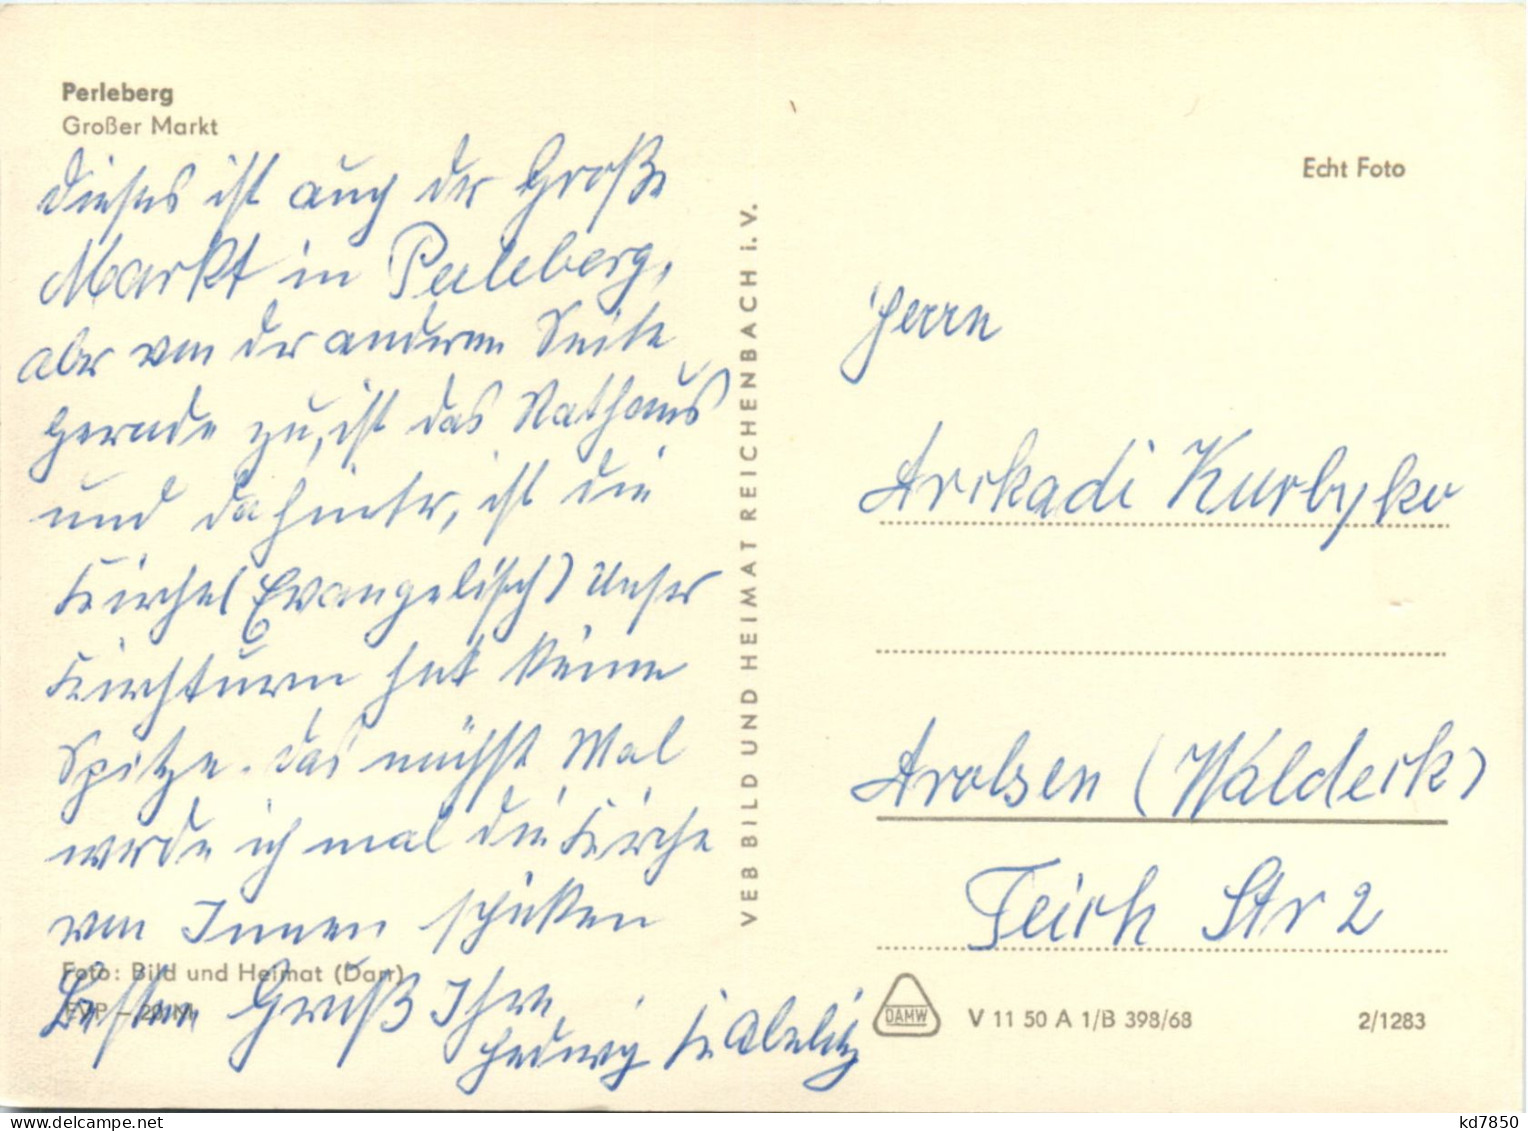 Perleberg
Großer Markt
Dieses ist auch der Große
Markt in Perleberg,
aber von der anderen Seite
gerade zu, ist das Rathaus
und dahinter, ist die
Kirche (Evangelisch) Unser
Kirchturm hat keine
Spitze. Das nächste Mal
werde ich mal die Kirche
von Innen schicken
Foto: Bild und Heimat (Darr)
EVP
Besten Gruß Ihre
Hedwig
VEB BILD UND HEIMAT REICHENBACH i. V.
Echt Foto
Herrn
Arckadi Kurbyko
Arolsen (Waldeck)
Teich Str 2
DAMW
V 11 50 A 1/B 398/68
2/1283
kd7850